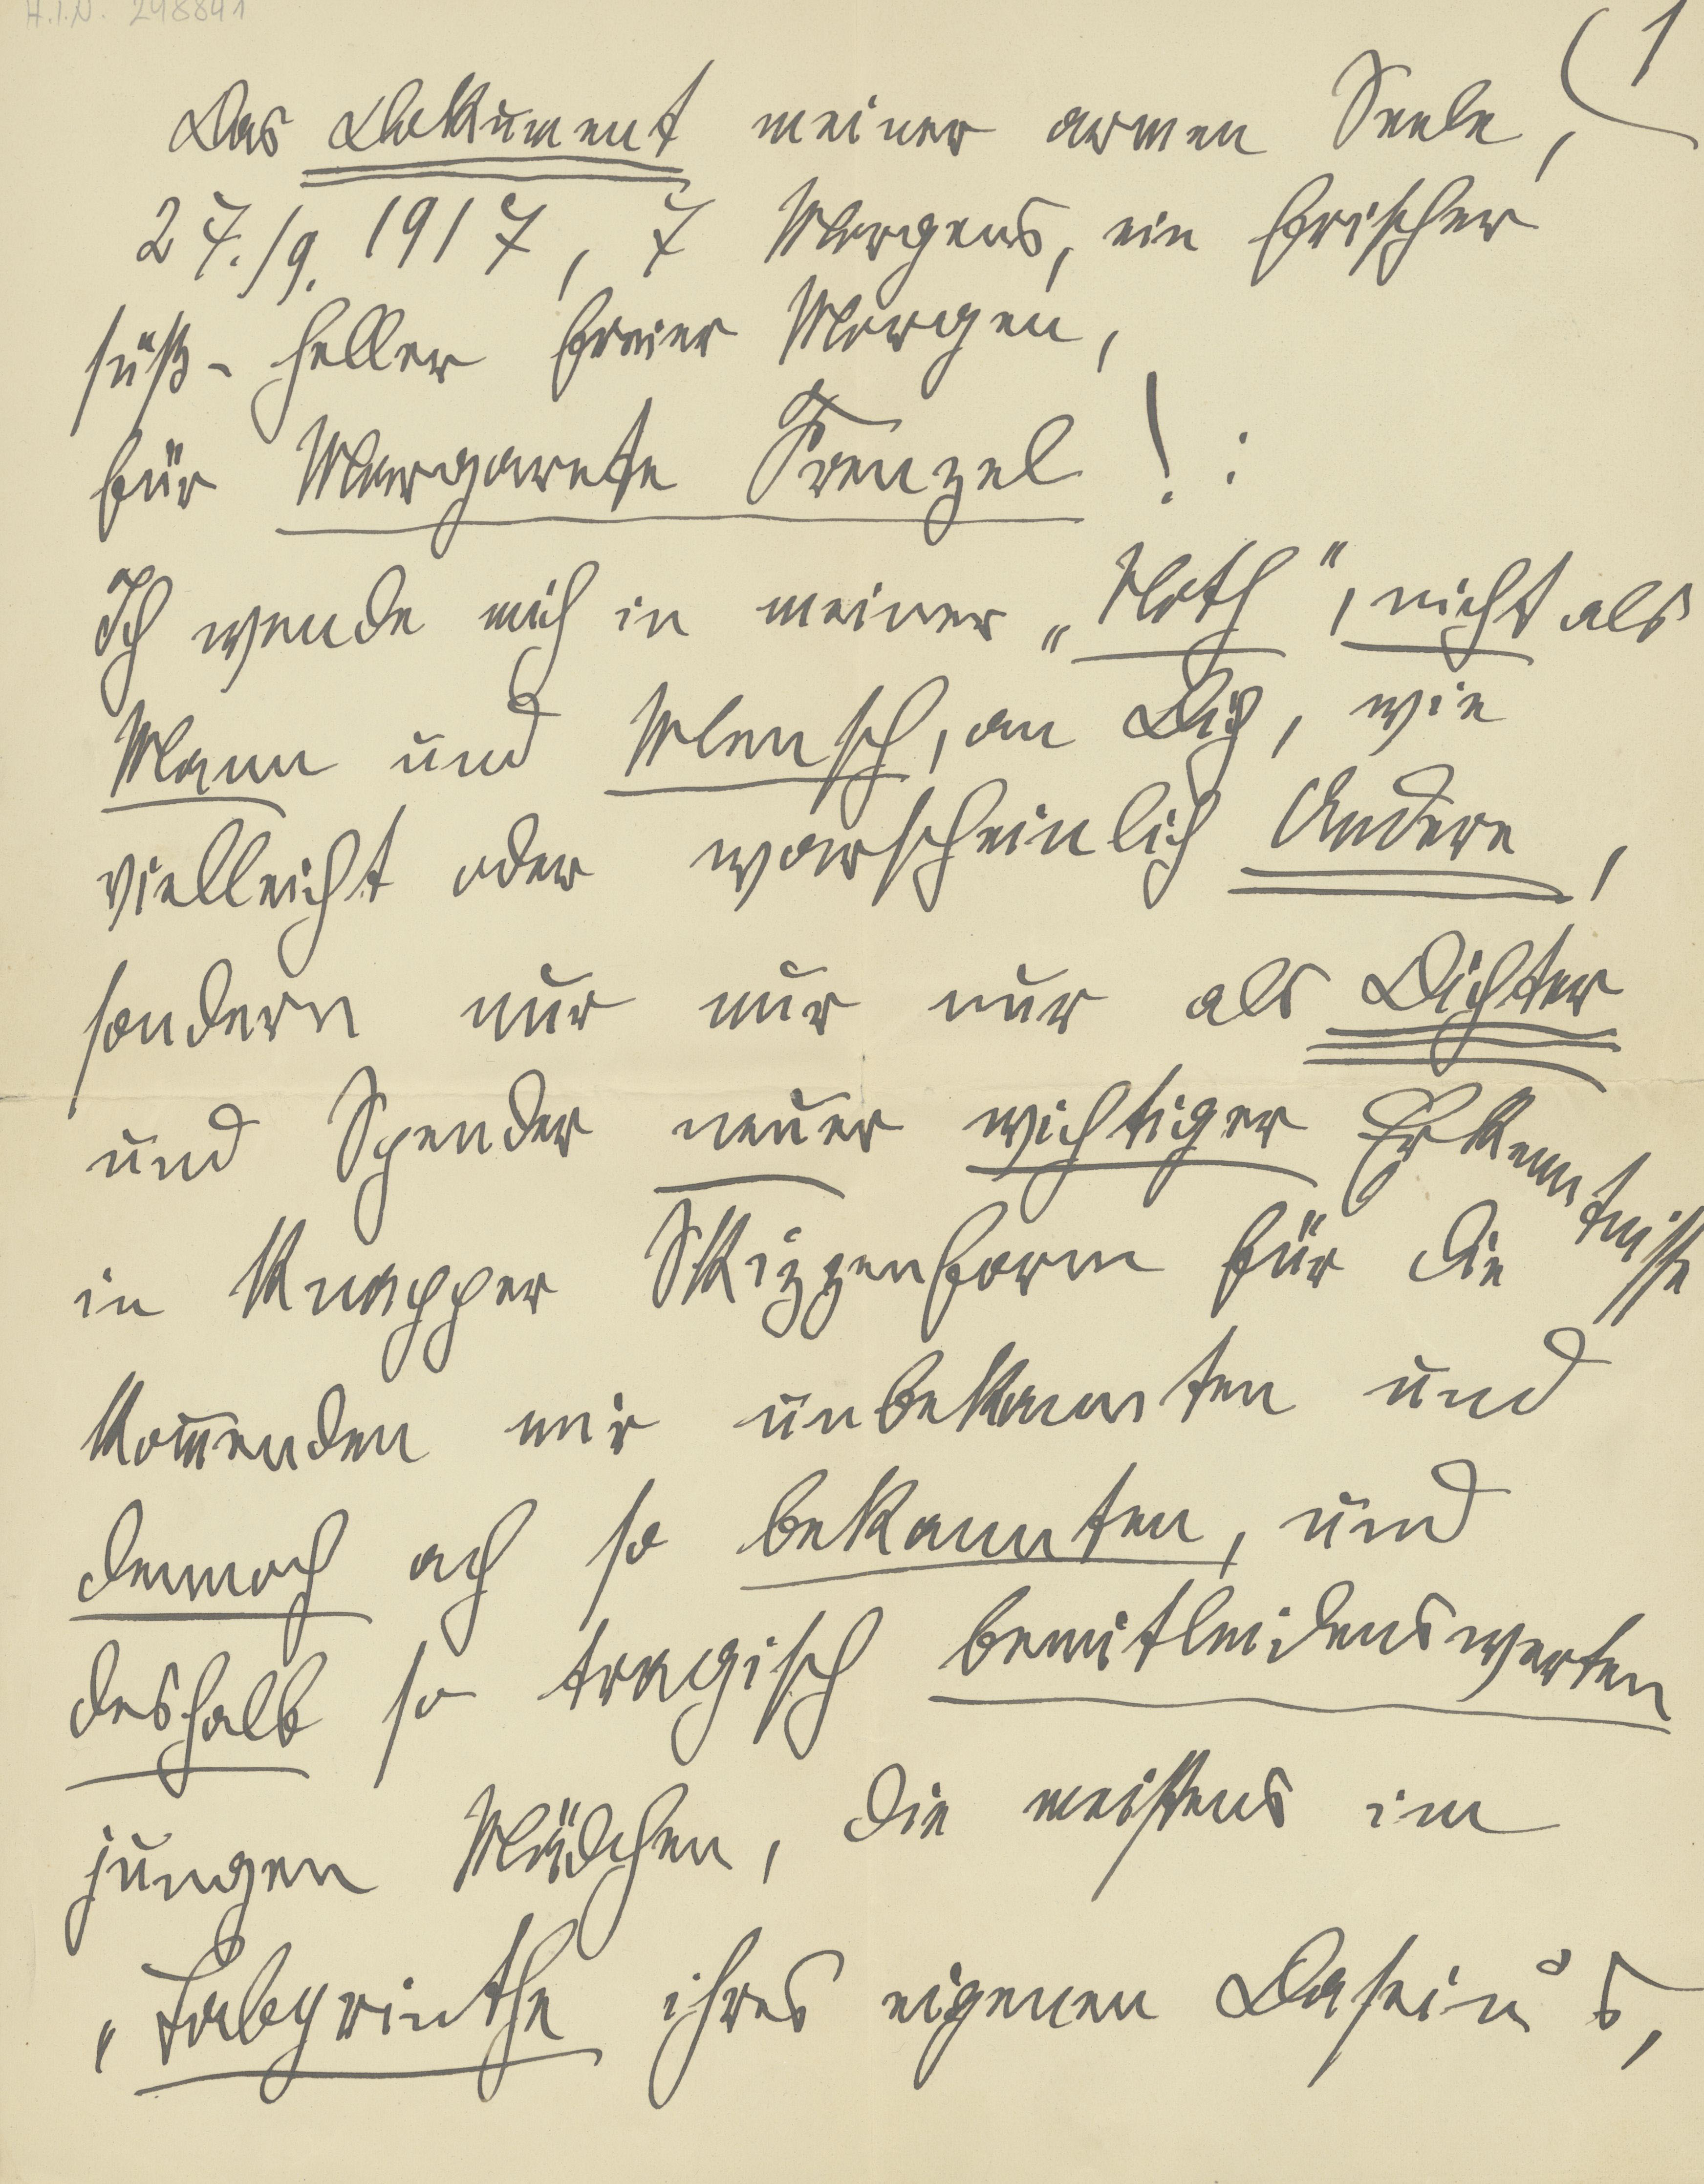 H.I.N. 298841
1
Das Dokument meiner armen Seele,
27./9. 1917, 7 Morgens, ein frischer
süß-heller freier Morgen,
für Margarete Frenzel! :
Ich wende mich in meiner „Noth", nicht als
Mann und Mensch, an Dich, wie
vielleicht oder warscheinlich Andere,
sondern nur nur nur als Dichter
und Spender neuer wichtiger Erkenntnisse
in knapper Skizzenform für die
kom̄enden mir unbekannten und
dennoch ach so bekannten, und
deshalb so tragisch bemitleidenswerten
jungen Mädchen, die meistens im
„Labyrinthe ihres eigenen Dasein's,